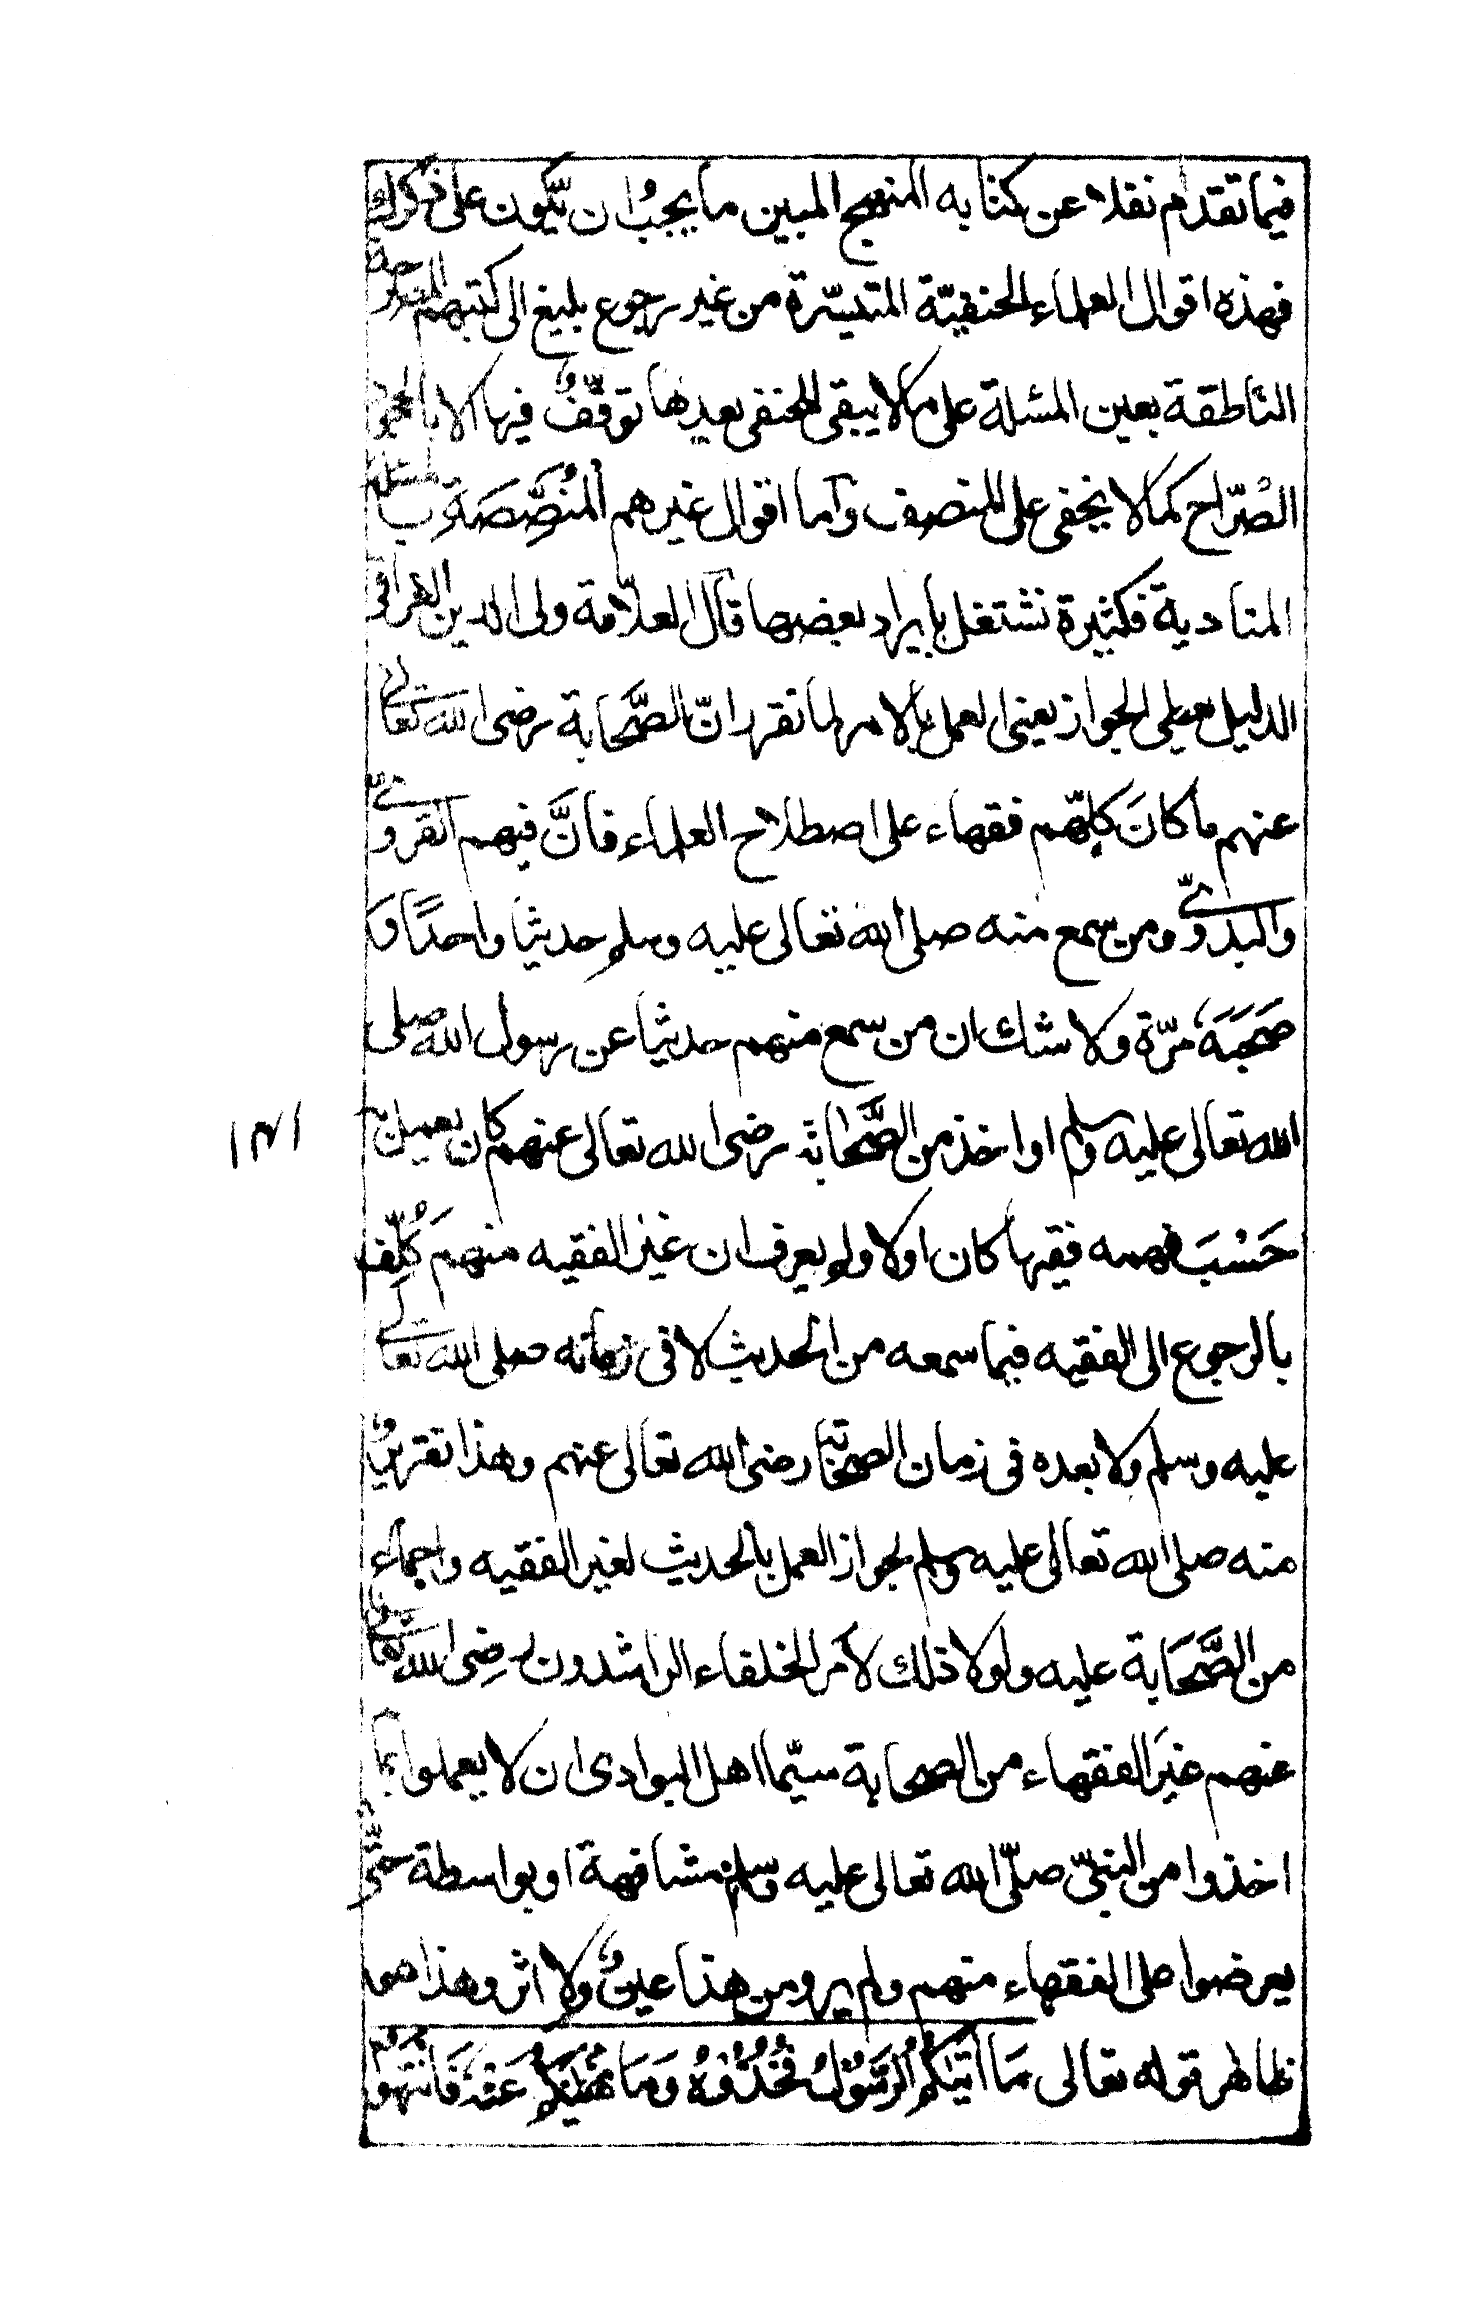 فيما تقدم نقلا عن كتابه المنهج المبين ما يجب ان يكون على ذكرك
فهذه اقوال العلماء الحنفيّة المتيسّرة من غير رجوع بليغ الى كتبهم
الناطقة بعين المسئلة على ما لا يبقى للحنفى بعدها توقّفٌ فيها الا
الصّراح كما لا يخفى على المنصف وآما اقوال غيرهم المُنَصَّصَة
المنادية فكثيرة نشتغل بايراد بعضها قال العلّامة ولى الدين العراقى
الدليل على الجواز يعنى العمل بالامر لما تقرر انّ الصَّحَابة رضى الله تعالى
عنهم ما كانَ كلّهم فقهاء على اصطلاح العلماء فانَّ فيهم القروىّ
والبدوىّ ومن سمع منه صلى الله تعالى عليه وسلم حديثا واحدًا و
صَحَبَهَ مرّة ولا شك ان من سمع منهم حديثا عن رسول الله صلى
الله تعالى عليه وسلم او اخذ من الصَّحَابة رضى الله تعالى عنهم كان يعمل
١٢١
حَسْبَ فهمه فقيها كان اولا ولم يعرف ان غير الفقيه منهم كُلِّف
بالرجوع الى الفقيه فيما سمعه من الحديث لا فى زمانه صلى الله تعالى
عليه وسلم ولا بعده فى زمان الصحابة رضى الله تعالى عنهم وهذا تقريرٌ
منه صلى الله تعالى عليه وسلم لجواز العمل بالحديث لغير الفقيه واجماع
من الصَّحَابة عليه ولولا ذلك لاَمر الخلفاء الراشدون رضى الله تعالى
عنهم غيرَ الفقهاء من الصحابة سيّما اهل البوادى ان لا يعملوا بما
اخذوا من النبىّ صلّى الله تعالى عليه وسلم مشافهة او بواسطة حتّى
يعرضوا على الفقهاء منهم ولم يرو من هذا عينٌ ولا اثر وهذا هو
ظاهر قوله تعالى مَا اٰتٰىكُمُ الرَّسُوْلُ فَخُذُوْهُ وَمَا نَهٰىكُمْ عَنْهُ فَانْتَهُوْا